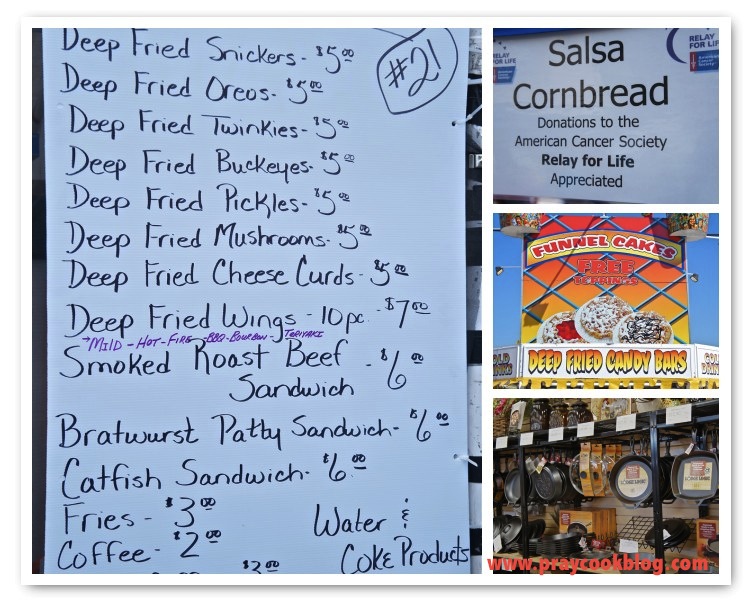 Deep Fried Snickers - $5.00
#21
Deep Fried Oreos - $5.00
Deep Fried Twinkies - $5.00
Deep Fried Buckeyes - $5.00
Deep Fried Pickles - $5.00
Deep Fried Mushrooms - $5.00
Deep Fried Cheese Curds - $5.00
Deep Fried Wings - 10 pc. - $7.00
→ MILD - HOT - FIRE - BBQ - BOURBON TERIYAKI
Smoked Roast Beef - $6.00
Sandwich
Bratwurst Patty Sandwich - $6.00
Catfish Sandwich - $6.00
Fries - $3.00
Water &
Coffee - $2.00
Coke Products
RELAY FOR LIFE
RELAY FOR LIFE
Salsa
Cornbread
Donations to the
American Cancer Society
Relay for Life
Appreciated
FUNNEL CAKES
FREE
TOPPINGS
COLD
DRINKS
DEEP FRIED CANDY BARS
COLD
LODGE LOGIC
www.praycookblog.com